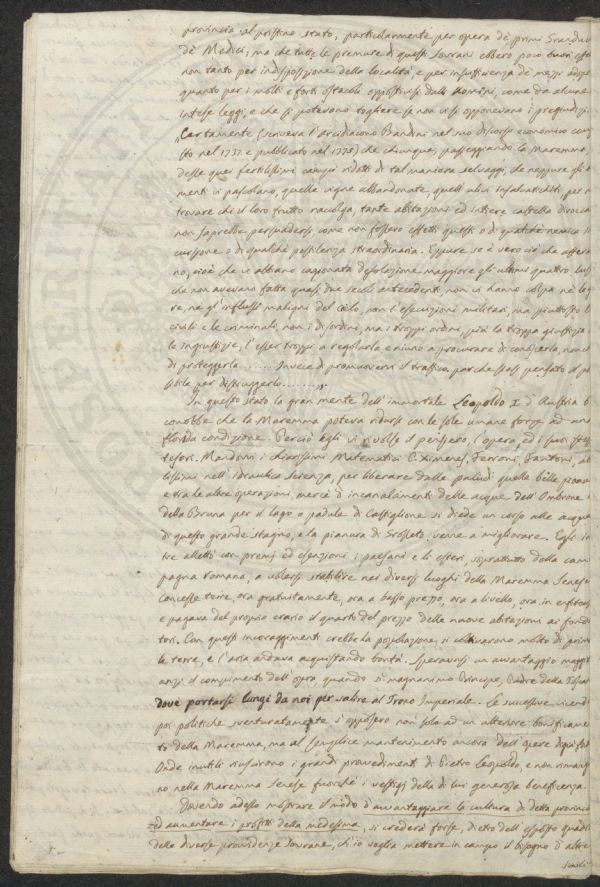 provincia al pristino stato, particolarmente per opera de' primi Granduc
de' Medici; ma che tutte le premure di questi Sovrani ebbero poco buon
non tanto per indisposizione della località, e per insufficienza de' mezzi adop
quanto per i molti e forti ostacoli oppostivisi dalli uomini, come da alcune
intese leggi, e che si potevano togliere se non vi si opponevano i pregiudizj.
"Certamente (scriveva l'arcidiacono Bandini nel suo discorso economico com
sto nel 1737. e pubblicato nel 1775) che chiunque, passeggiando la Maremma,
desse quei fertilissimi campi ridotti di tal maniera selvaggi, che neppure gli a
menti vi pascolano, quelle vigne abbandonate, quelli ulivi insalvatichiti per n
trovare chi il loro frutto raccolga, tante abitazioni ed intiere castella diroca
non saprebbe persuadersi come non fossero effetti questi o di qualche nemica in
cursione o di qualche pestilenza straordinaria. Eppure se è vero ciò che affer
no, cioè che vi abbiano cagionata desolazione maggiore gli ultimi quattro lus
che non avevano fatta quasi due secoli antecedenti, non vi hanno colpa nè le g
re, nè gl'influssi maligni del cielo, non l'esecuzioni militari, ma piuttosto le
civili e le criminali, non i disordini, ma i troppi ordini, più la troppa giustizia
le ingiustizie, l'esser troppi a regolarla e niuno a procurare di conoscerla, non
di proteggerla........ Invece di promuovervi il traffico, par che siasi pensato al
sibile per distruggerlo........".
In questo stato la gran mente dell'immortale Leopoldo I. d'Austria
conobbe che la Maremma poteva ridursi con le sole umane forze ad una
florida condizione. Perciò egli vi rivolse il pensiero, l'opera, ed i suoi stes
tesori. Mandovvi i chiarissimi Matematici P. Ximenes, Ferroni, Fantoni,
tissimi nell'idraulica scienza, per liberare dalle paludi quelle belle pianu
e tra le altre operazioni, mercè d'incanalamenti delle acque dell'Ombrone
della Bruna per il lago o padule di Castiglione si diede un corso alle acque
di questo grande stagno, e la pianura di Grosseto, venne a migliorare. Egli in
tre allettò con premj ed esenzioni i paesani e li esteri, soprattutto della cam
pagna romana, a volersi stabilire nei diversi luoghi della Maremma Senese
Concesse terre, ora gratuitamente, ora a basso prezzo, ora a livello, ora in enfiteu
e pagava del proprio erario il quarto del prezzo delle nuove abitazioni ai fonda
tori. Con questi incoraggimenti crebbe la popolazione, si coltivarono molto di prima
le terre, e l'aria andava acquistando bontà. Speravasi un avvantaggio maggi
anzi il compimento dell'opra, quando si magnanimo Principe, Padre della Tosca
dovè portarsi lungi da noi per salire al Trono Imperiale. Le successive vicend
poi politiche sventuratamente si opposero non solo ad un ulteriore bonificame
to della Maremma, ma al semplice mantenimento ancora dell'opere
Onde inutili riuscirono i grandi provvedimenti di Pietro Leopoldo, e non riman
no nella Maremma Senese fuorchè i vestigj della di lui generosa beneficenza.
Dovendo adesso mostrare il modo d'avvantaggiare la cultura di detta provinci
ed aumentare i profitti della medesima, si crederà forse, dietro dell'esposto quad
delle diverse providenze Sovrane, ch'io voglia mettere in campo il bisogno d'altre
simili